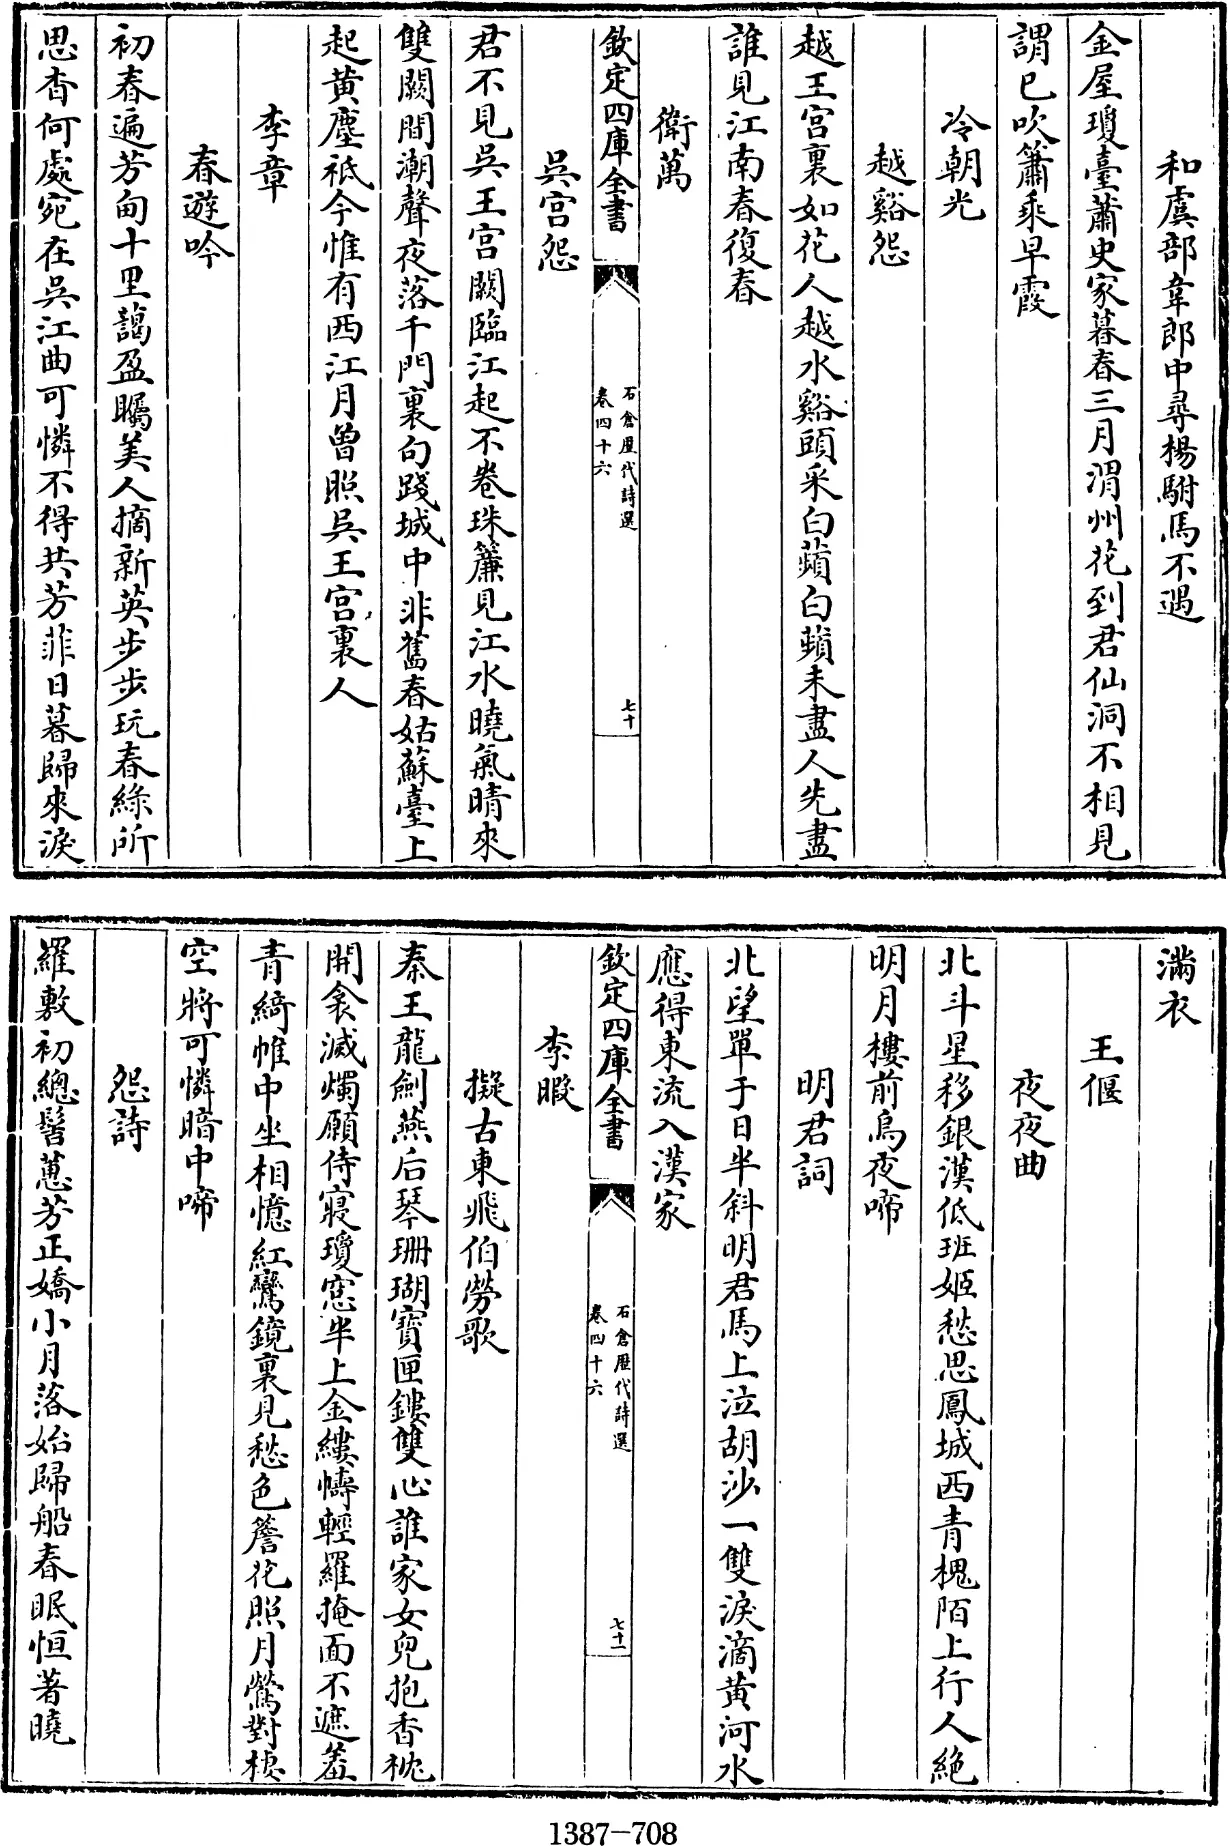 和虞部韋郎中尋楊駙馬不遇
金屋瓊臺蕭史家暮春三月渭州花到君仙洞不相見
謂已吹簫乘早霞
冷朝光
越谿怨
越王宮裏如花人越水谿頭采白蘋白蘋未盡人先盡
誰見江南春復春
衛萬
欽定四庫全書
石倉歷代詩選
卷四十六
七十
吳宮怨
君不見吳王宮闕臨江起不卷珠簾見江水曉氣晴來
雙闕間潮聲夜落千門裏句踐城中非舊春姑蘇臺上
起黃塵祇今惟有西江月曾照吳王宮裏人
李章
春遊吟
初春遍芳甸十里藹盈矚美人摘新英步步玩春綠所
思杳何處宛在吳江曲可憐不得共芳菲日暮歸來淚
滿衣
王偃
夜夜曲
北斗星移銀漢低班姬愁思鳳城西青槐陌上行人絶
明月樓前烏夜啼
明君詞
北望單于日半斜明君馬上泣胡沙一雙淚滴黃河水
應得東流入漢家
欽定四庫全書
石倉歷代詩選
卷四十六
七十一
李暇
擬古東飛伯勞歌
秦王龍劍燕后琴珊瑚寶匣鏤雙心誰家女兒抱香枕
開衾滅燭願侍寢瓊窓半上金縷幬輕羅掩面不遮羞
青綺帷中坐相憶紅鸞鏡裏見愁色簷花照月鶯對棲
空將可憐暗中啼
怨詩
羅敷初總髻蕙芳正嬌小月落始歸船春眠恒著曉
1387-708